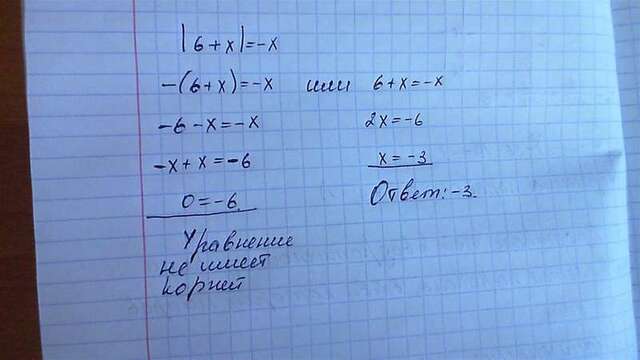 |6+x|=-x
-(6+x)=-x или 6+x=-x
-6-x=-x 2x=-6
-x+x=-6 x=-3
0=-6 Ответ:-3.
Уравнение
не имеет
корней